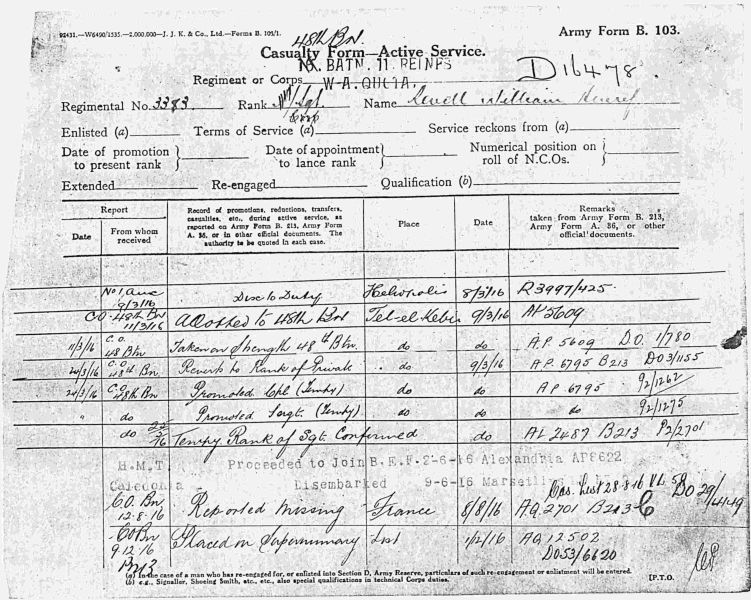 92431.—W6490/1535.—2,000,000—J. J. K. & Co., Ltd.—Forms B. 103/1.
Army Form B. 103.
48th Bn.
Casualty Form—Active Service.
BATN. 11 REINFS
D16478.
Regiment or Corps W-A.
Regimental No. 3383. Rank Sgt. Name William Henry
Enlisted (a) Terms of Service (a) Service reckons from (a)
Date of promotion to present rank } Date of appointment to lance rank } Numerical position on roll of N.C.Os. }
Extended Re-engaged Qualification (b)
Report
Date From whom received
Record of promotions, reductions, transfers, casualties, etc., during active service, as reported on Army Form B. 213, Army Form A. 36, or in other official documents. The authority to be quoted in each case.
Place
Date
Remarks
taken from Army Form B. 213, Army Form A. 36, or other official documents.
No 1 Aux 8/3/16 Disc to Duty Heliopolis 8/3/16 R3997/425
CO 48th Bn 11/3/16 Allotted to 48th Bn Tel-el-Kebir 9/3/16 AP 5609
11/3/16 C.O. 48 Btn Taken on Strength 48th Btn. do do A.P. 5609 DO. 1/780
24/3/16 C.O. 48th Bn Reverts to Rank of Private do 9/3/16 A.P. 6795 B213 DO3/1155
24/3/16 C.O. 48th Bn Promoted Cpl (Tempy) do do A.P. 6795 92/1262
" do Promoted Sergt. (Tempy) do do do 92/1275
do Tempy Rank of Sgt Confirmed do 2487 B213 P2/2701
H.M.T. Proceeded to Join B.E.F. 2-6-16 Alexandria AP8622
Caledonia Disembarked 9-6-16 Marseilles
Cas. List 28-8-16
C.O. Bn 12-8-16 Reported Missing France 8/8/16 AQ 2701 B213 DO 29/
CO Bn 9.12.16 Placed on Supernumary List AQ 12502
DO53/6620
(a) In the case of a man who has re-engaged for, or enlisted into Section D, Army Reserve, particulars of such re-engagement or enlistment will be entered.
(b) e.g., Signaller, Shoeing Smith, etc., etc., also special qualifications in technical Corps duties.
[P.T.O.